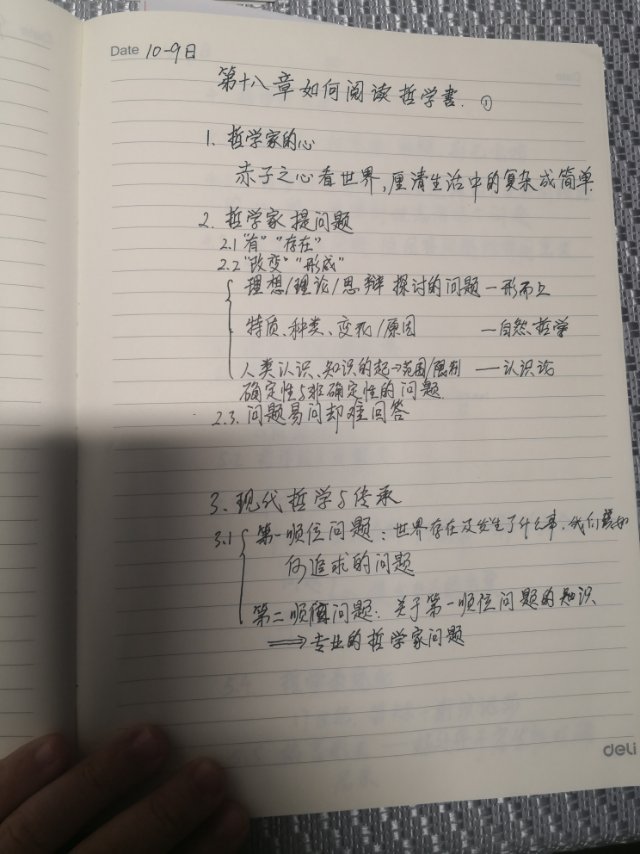 Date 10-9日
第十八章如何阅读哲学书. ①
1. 哲学家的心
赤子之心看世界,厘清生活中的复杂成简单.
2. 哲学家提问题
2.1 "有" "存在"
2.2 "改变" "形成"
理想/理论/思辩 探讨的问题 — 形而上
特质、种类、变化/原因 — 自然哲学
人类认识、知识的起→范围/限制 — 认识论
确定性与非确定性的问题
2.3. 问题易问却难回答
3. 现代哲学与传承
3.1 第一顺位问题: 世界存在及发生了什么事, 我们
何追求的问题
第二顺位问题: 关于第一顺位问题的知识
⟹ 专业的哲学家问题
deli